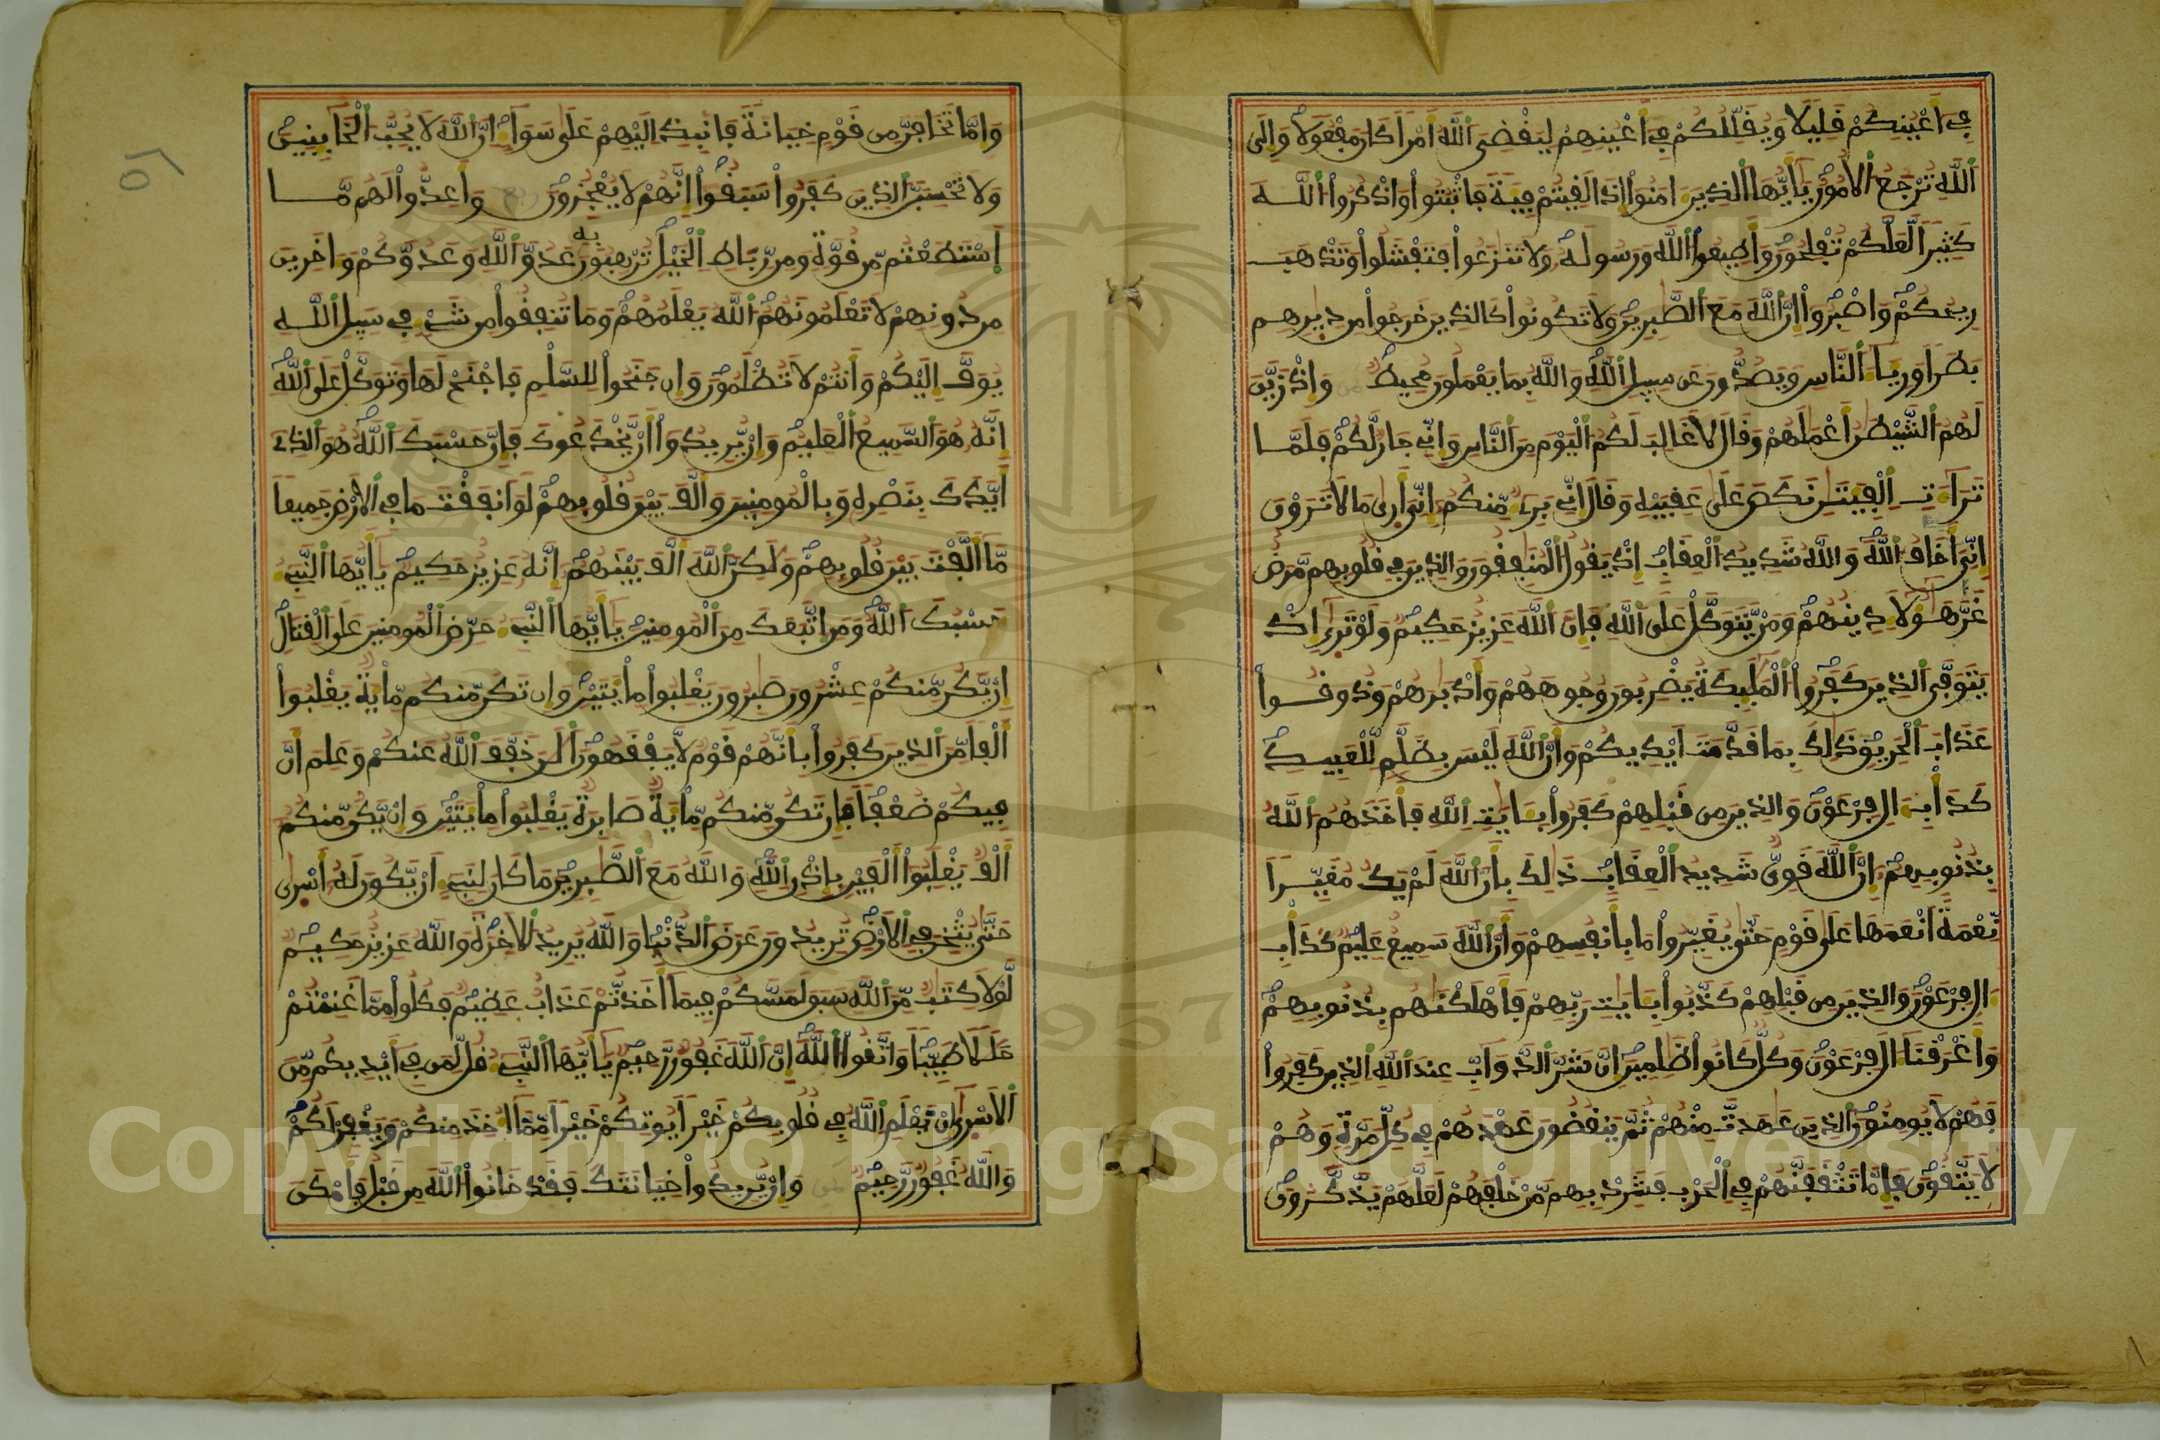 في أَعْيُنِكُمْ قَلِيلًا وَيُقَلِّلُكُمْ في أَعْيُنِهِمْ لِيَقْضِيَ اَللَّهُ أَمْرًا كَانَ مَفْعُولًا وَإِلَى
اَللَّهِ تُرْجَعُ اُلْأُمُورُ يَا أَيُّهَا اَلذِينَ ءَامَنُوا إِذَا لَقِيتُمْ فِيَةً فَاثْبُتُوا وَاذْكُرُوا اُللَّهَ
كَثِيرًا لَّعَلَّكُمْ تُفْلِحُونَ وَأَطِيعُوا اُللَّهَ وَرَسُولَهُ وَلَا تَنَٰزَعُوا فَتَفْشَلُوا وَتَذْهَبَ
رِيحُكُمْ وَاصْبِرُوا إِنَّ اَللَّهَ مَعَ اَلصَّٰبِرِينَ وَلَا تَكُونُوا كَالذِينَ خَرَجُوا مِن دِيٰرِهِم
بَطَرًا وَرِيَاءَ اَلنَّاسِ وَيَصُدُّونَ عَن سَبِيلِ اِللَّهِ وَاللَّهُ بِمَا يَعْمَلُونَ مُحِيطٌ وَإِذْ زَيَّنَ
لَهُمُ اُلشَّيْطَٰنُ أَعْمَٰلَهُمْ وَقَالَ لَا غَالِبَ لَكُمُ اُلْيَوْمَ مِنَ اَلنَّاسِ وَإِنِّي جَارٌ لَّكُمْ فَلَمَّا
تَرَاءَتِ اِلْفِيَتَٰنِ نَكَصَ عَلَىٰ عَقِبَيْهِ وَقَالَ إِنِّي بَرِيءٌ مِّنكُمْ إِنِّيَ أَرَىٰ مَا لَا تَرَوْنَ
إِنِّيَ أَخَافُ اُللَّهَ وَاللَّهُ شَدِيدُ اُلْعِقَابِ إِذْ يَقُولُ اُلْمُنَٰفِقُونَ وَالذِينَ في قُلُوبِهِم مَّرَضٌ
غَرَّ هَٰؤُلَاءِ دِينُهُمْ وَمَنْ يَّتَوَكَّلْ عَلَى اَللَّهِ فَإِنَّ اَللَّهَ عَزِيزٌ حَكِيمٌ وَلَوْ تَرَىٰ إِذْ
يَتَوَفَّى اَلذِينَ كَفَرُوا اُلْمَلَٰئِكَةُ يَضْرِبُونَ وُجُوهَهُمْ وَأَدْبَٰرَهُمْ وَذُوقُوا
عَذَابَ اَلْحَرِيقِ ذَٰلِكَ بِمَا قَدَّمَتَ اَيْدِيكُمْ وَأَنَّ اَللَّهَ لَيْسَ بِظَلَّٰمٍ لِّلْعَبِيدِ
كَدَأْبِ ءَالِ فِرْعَوْنَ وَالذِينَ مِن قَبْلِهِمْ كَفَرُوا بِـَٔايَٰتِ اِللَّهِ فَأَخَذَهُمُ اُللَّهُ
بِذُنُوبِهِمُ إِنَّ اَللَّهَ قَوِيٌّ شَدِيدُ اُلْعِقَابِ ذَٰلِكَ بِأَنَّ اَللَّهَ لَمْ يَكُ مُغَيِّرًا
نِّعْمَةً أَنْعَمَهَا عَلَىٰ قَوْمٍ حَتَّىٰ يُغَيِّرُوا مَا بِأَنفُسِهِمْ وَأَنَّ اَللَّهَ سَمِيعٌ عَلِيمٌ كَدَأْبِ
ءَالِ فِرْعَوْنَ وَالذِينَ مِن قَبْلِهِمْ كَذَّبُوا بِـَٔايَٰتِ رَبِّهِمْ فَأَهْلَكْنَٰهُم بِذُنُوبِهِمْ
وَأَغْرَقْنَا ءَالَ فِرْعَوْنَ وَكُلٌّ كَانُوا ظَٰلِمِينَ إِنَّ شَرَّ اَلدَّوَابِّ عِندَ اَللَّهِ اِلذِينَ كَفَرُوا
فَهُمْ لَا يُومِنُونَ اَلذِينَ عَٰهَدتَّ مِنْهُمْ ثُمَّ يَنقُضُونَ عَهْدَهُمْ في كُلِّ مَرَّةٍ وَهُمْ
لَا يَتَّقُونَ فَإِمَّا تَثْقَفَنَّهُمْ فِي اِلْحَرْبِ فَشَرِّدْ بِهِم مَّنْ خَلْفَهُمْ لَعَلَّهُمْ يَذَّكَّرُونَ
وَإِمَّا تَخَافَنَّ مِن قَوْمٍ خِيَانَةً فَانبِذِ اِلَيْهِمْ عَلَىٰ سَوَاءٍ إِنَّ اَللَّهَ لَا يُحِبُّ اُلْخَائِنِينَ
وَلَا تَحْسِبَنَّ اَلذِينَ كَفَرُوا سَبَقُوا إِنَّهُمْ لَا يُعْجِزُونَ وَأَعِدُّوا لَهُم مَّا
اَسْتَطَعْتُم مِّن قُوَّةٍ وَمِن رِّبَاطِ اِلْخَيْلِ تُرْهِبُونَ بِهِ عَدُوَّ اَللَّهِ وَعَدُوَّكُمْ وَءَاخَرِينَ
مِن دُونِهِمْ لَا تَعْلَمُونَهُمُ اُللَّهُ يَعْلَمُهُمْ وَمَا تُنفِقُوا مِن شَيْءٍ في سَبِيلِ اِللَّهِ
يُوَفَّ إِلَيْكُمْ وَأَنتُمْ لَا تُظْلَمُونَ وَإِن جَنَحُوا لِلسَّلْمِ فَاجْنَحْ لَهَا وَتَوَكَّلْ عَلَى اَللَّهِ
إِنَّهُ هُوَ اَلسَّمِيعُ اُلْعَلِيمُ وَإِنْ يُّرِيدُوا أَنْ يَّخْدَعُوكَ فَإِنَّ حَسْبَكَ اَللَّهُ هُوَ اَلذِي
أَيَّدَكَ بِنَصْرِهِ وَبِالْمُومِنِينَ وَأَلَّفَ بَيْنَ قُلُوبِهِمْ لَوَ اَنفَقْتَ مَا فِي اِلْأَرْضِ جَمِيعًا
مَّا أَلَّفْتَ بَيْنَ قُلُوبِهِمْ وَلَٰكِنَّ اَللَّهَ أَلَّفَ بَيْنَهُمُ إِنَّهُ عَزِيزٌ حَكِيمٌ يَا أَيُّهَا اَلنَّبِيءُ
حَسْبُكَ اَللَّهُ وَمَنِ اتَّبَعَكَ مِنَ اَلْمُومِنِينَ يَا أَيُّهَا اَلنَّبِيءُ حَرِّضِ اِلْمُومِنِينَ عَلَى اَلْقِتَالِ
إِنْ يَّكُن مِّنكُمْ عِشْرُونَ صَٰبِرُونَ يَغْلِبُوا مِاْئَتَيْنِ وَإِن تَكُن مِّنكُم مِّاْئَةٌ يَغْلِبُوا
أَلْفًا مِّنَ اَلذِينَ كَفَرُوا بِأَنَّهُمْ قَوْمٌ لَّا يَفْقَهُونَ اَلْـَٰٔنَ خَفَّفَ اَللَّهُ عَنكُمْ وَعَلِمَ أَنَّ
فِيكُمْ ضُعْفًا فَإِن تَكُن مِّنكُم مِّاْئَةٌ صَابِرَةٌ يَغْلِبُوا مِاْئَتَيْنِ وَإِنْ يَّكُن مِّنكُمُ
أَلْفٌ يَغْلِبُوا أَلْفَيْنِ بِإِذْنِ اِللَّهِ وَاللَّهُ مَعَ اَلصَّٰبِرِينَ مَا كَانَ لِنَبِيءٍ اَنْ يَّكُونَ لَهُ أَسْرَىٰ
حَتَّىٰ يُثْخِنَ فِي اِلْأَرْضِ تُرِيدُونَ عَرَضَ اَلدُّنْيَا وَاللَّهُ يُرِيدُ اُلْأَخِرَةَ وَاللَّهُ عَزِيزٌ حَكِيمٌ
لَّوْلَا كِتَٰبٌ مِّنَ اَللَّهِ سَبَقَ لَمَسَّكُمْ فِيمَا أَخَذتُّمْ عَذَابٌ عَظِيمٌ فَكُلُوا مِمَّا غَنِمْتُمْ
حَلَٰلًا طَيِّبًا وَاتَّقُوا اُللَّهَ إِنَّ اَللَّهَ غَفُورٌ رَّحِيمٌ يَا أَيُّهَا اَلنَّبِيءُ قُل لِّمَن في أَيْدِيكُم مِّنَ
اَلْأَسْرَىٰ إِنْ يَّعْلَمِ اِللَّهُ في قُلُوبِكُمْ خَيْرًا يُوتِكُمْ خَيْرًا مِّمَّا أُخِذَ مِنكُمْ وَيَغْفِرْ لَكُمْ
وَاللَّهُ غَفُورٌ رَّحِيمٌ وَإِنْ يُّرِيدُوا خِيَانَتَكَ فَقَدْ خَانُوا اُللَّهَ مِن قَبْلُ فَأَمْكَنَ
Copyright © King Saud University
1957